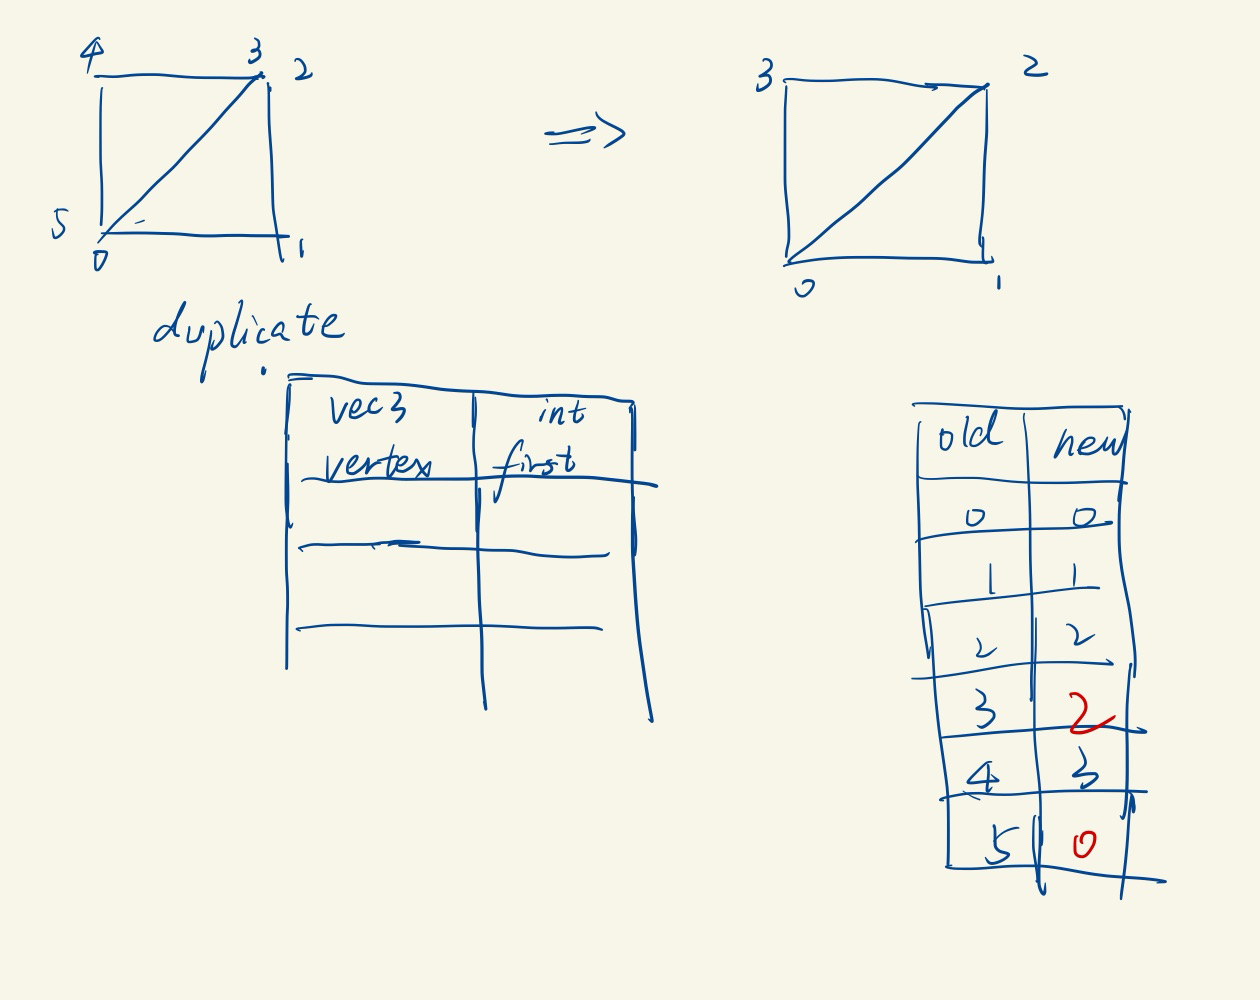 4 3 2
5
0 1
⇒
3 2
0 1
duplicate
vec3 int
vertex first
old new
0 0
1 1
2 2
3 2
4 3
5 0